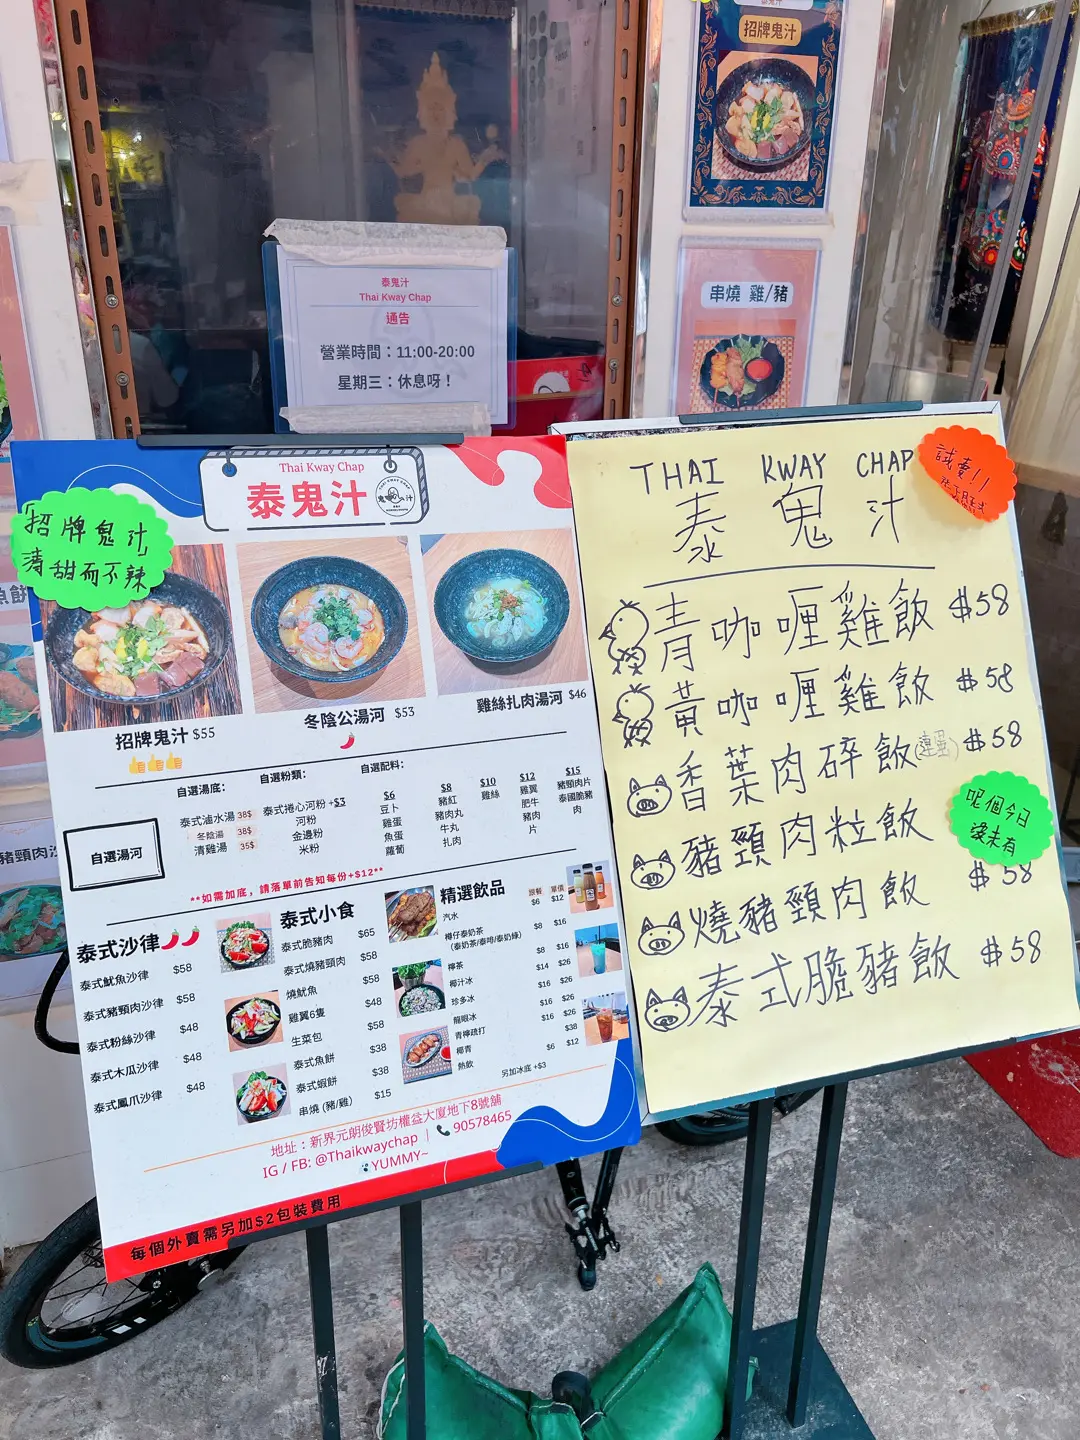 招牌鬼汁
串燒 雞/豬
泰鬼汁
Thai Kway Chap
通告
營業時間：11:00-20:00
星期三：休息呀！
Thai Kway Chap
泰鬼汁
「招牌鬼汁」
清甜而不辣
招牌鬼汁 $55
冬陰公湯河 $53
雞絲扎肉湯河 $46
自選湯河
自選湯底：
泰式滷水湯 38$
冬陰湯 38$
清雞湯 35$
自選粉類：
泰式捲心河粉 +$3
河粉
金邊粉
米粉
自選配料：
$6
豆卜
雞蛋
魚蛋
蘿蔔
$8
豬紅
豬肉丸
牛丸
扎肉
$10
雞絲
$12
雞翼
肥牛
豬肉
片
$15
豬頸肉片
泰國脆豬
肉
**如需加底，請落單前告知每份+$12**
泰式沙律
泰式魷魚沙律 $58
泰式豬頸肉沙律 $58
泰式粉絲沙律 $48
泰式木瓜沙律 $48
泰式鳳爪沙律 $48
泰式小食
泰式脆豬肉 $65
泰式燒豬頸肉 $58
燒魷魚 $58
雞翼6隻 $48
生菜包 $58
泰式魚餅 $38
泰式蝦餅 $38
串燒 (豬/雞) $15
精選飲品
跟餐 單價
汽水 $6 $12
樽仔泰奶茶 $8 $16
(泰奶茶/泰啡/泰奶綠)
檸茶 $8 $16
椰汁冰 $14 $26
珍多冰 $16 $26
龍眼冰 $16 $26
青檸疏打 $16 $26
椰青 $38
熱飲 $6 $12
另加冰底 +$3
地址：新界元朗俊賢坊權益大廈地下8號舖
IG / FB: @Thaikwaychap | 90578465
YUMMY~
每個外賣需另加$2包裝費用
THAI KWAY CHAP
泰鬼汁
試賣!!
青咖喱雞飯 $58
黃咖喱雞飯 $58
香葉肉碎飯(連蛋) $58
豬頸肉粒飯
呢個今日
沒未有
燒豬頸肉飯 $58
泰式脆豬飯 $58